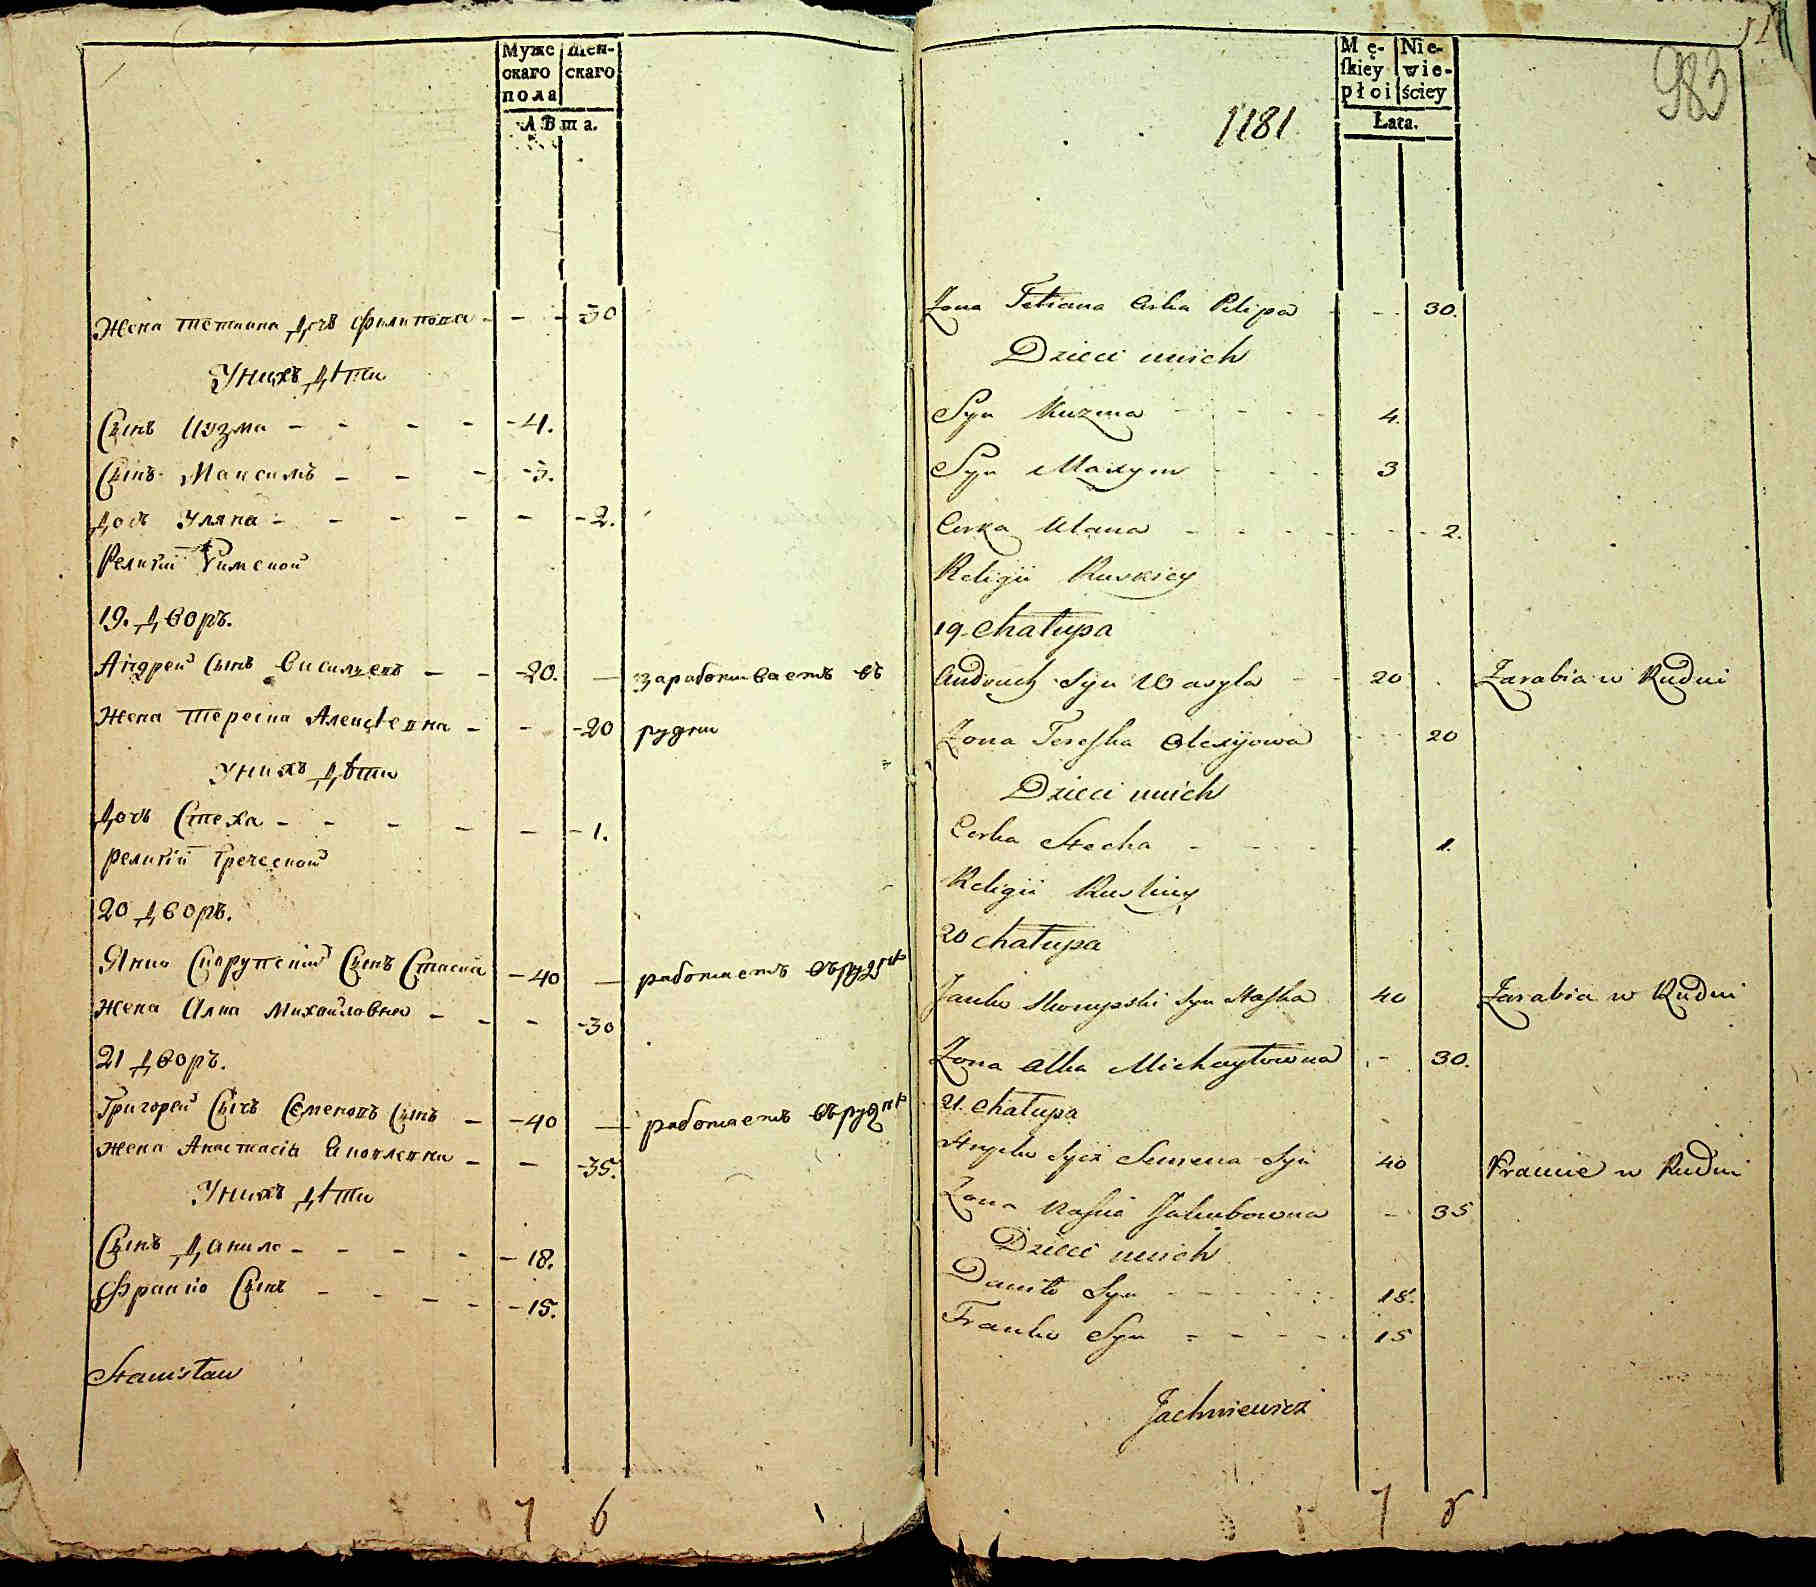 Муже
скаго
пола
Жен-
скаго
лѣта.
Жена Тетиана дочь Филипова - - - 30
У нихъ дѣти
Сынъ Кузма - - - - 4.
Сынъ Максимъ - - - 3.
Дочь Уляна - - - - - 2.
Религіи Римской
19. Дворъ.
Андрей Сынъ Васильевъ - - 20. — заработиваетъ въ
Жена Тересиа Алексѣевна - - - 20 рудни
У нихъ дѣти
Дочь Стеха - - - - - 1.
Религіи Греческой
20 Дворъ.
Янко Скорупскій Сынъ Стаска - 40 — работаетъ въ руднѣ
Жена Алка Михайловна - - - 30
21 Дворъ.
Григорей Сычъ Семеновъ Сынъ - - 40 — работаетъ въ руднѣ
Жена Анастасія Яковлевна - - - 35.
У нихъ дѣти
Сынъ Данило - - - - - 18.
Франко Сынъ - - - - - 15.
Stanisław
7 6
51
983
1181
Mę-
skiey
płci
Nie-
wie-
ściey
Lata.
Zona Tetiana Corka Pilipa - - 30.
Dzieci u nich
Syn Kuzma - - - - 4.
Syn Maxym - - - 3
Corka Ulana - - - - - - 2.
Religii Ruskiey
19. Chałupa
Andruch Syn Wasyla - - 20 Zarabia w Rudni
Zona Tereska Olexijowa - - - 20
Dzieci u nich
Corka Stecha - - - - 1.
Religii Ruskiey
20 Chałupa
Janko Skorupski Syn Staska 40 Zarabia w Rudni
Zona Alka Michayłowna - - 30.
21. Chałupa
Hryćko Sycz Semena Syn 40 Pracuie w Rudni
Zona Naścia Jakubowna - 35
Dzieci u nich
Daniło Syn - - - - - - 18.
Franko Syn - - - - - 15
Jachniewicz
7 8